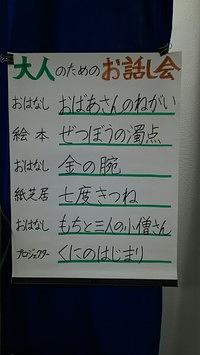 大人のためのお話し会
おはなし おばあさんのねがい
絵本 ぜつぼうの濁点
おはなし 金の腕
紙芝居 七度きつね
おはなし もちと三人の小僧さん
プロジェクター くにのはじまり